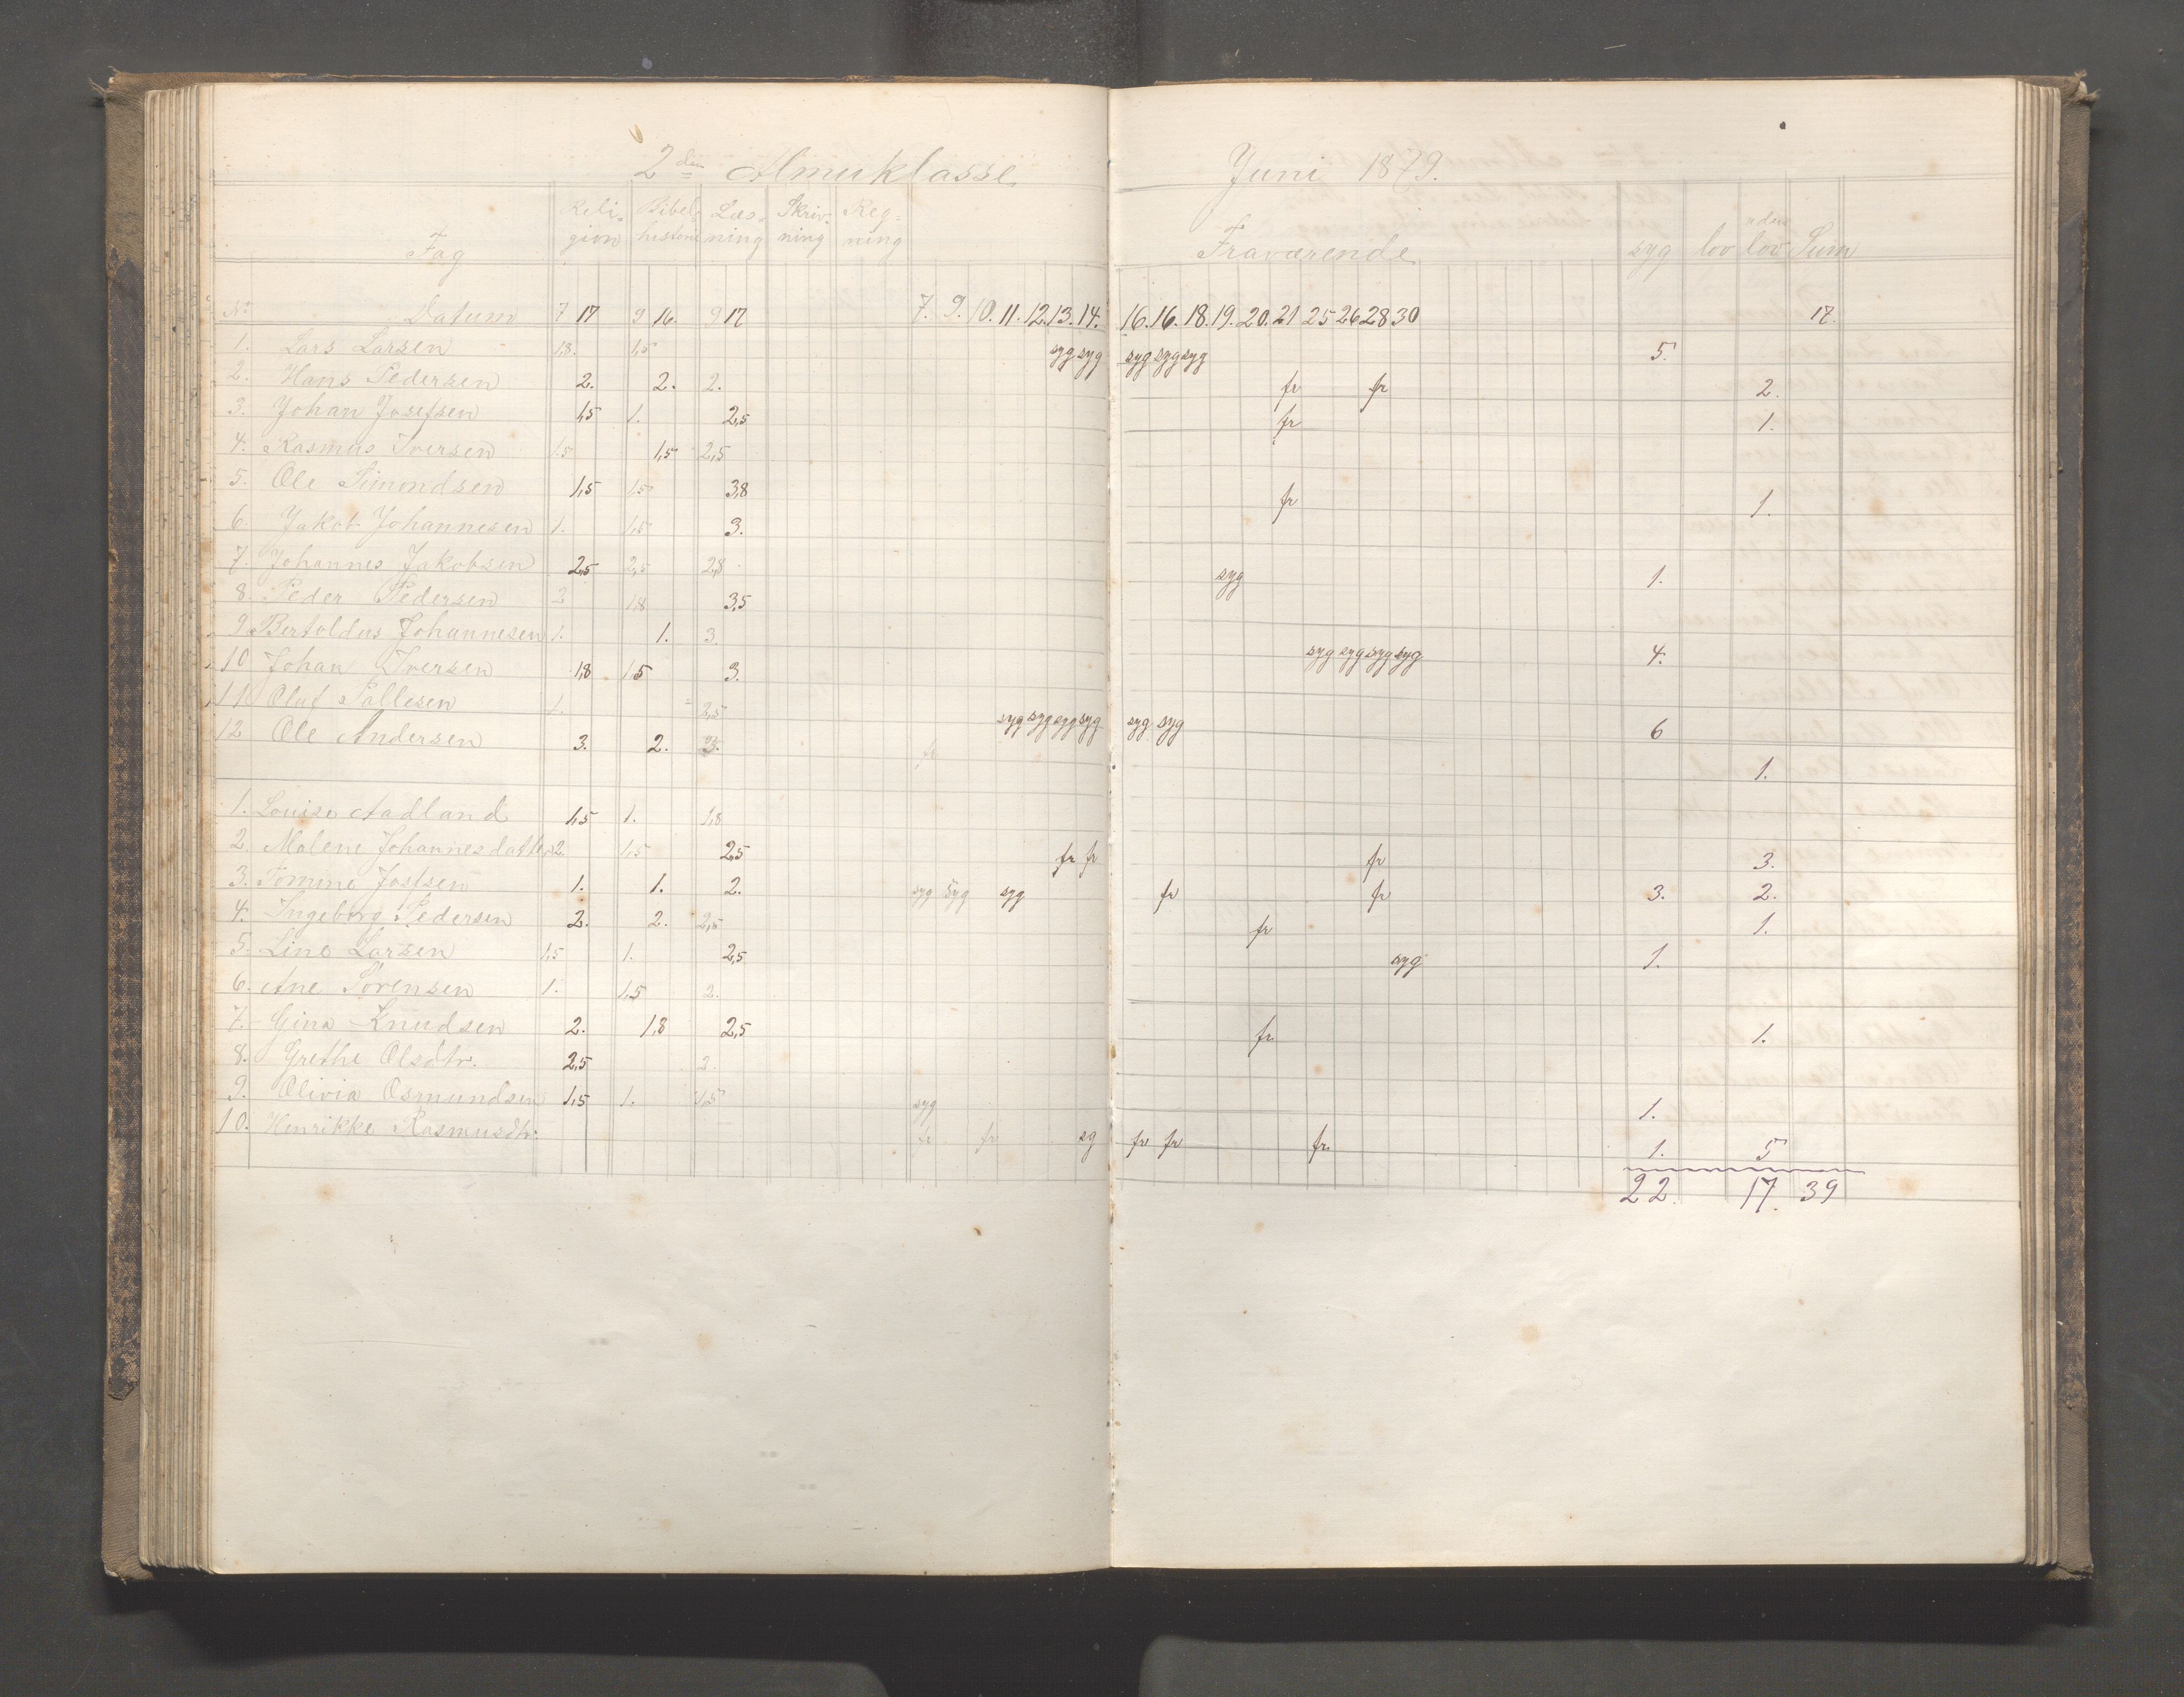 2den Almueklasse Juni 1879.
Fag Religion Bibelhistorie Læsning Skrivning Regning Fraværende syg lov uden lov Sum
No Datum 7 17 9 16. 9 17 7. 9. 10. 11. 12. 13. 14. 16. 16. 18. 19. 20. 21 25 26 28 30 17.
1. Lars Larsen 1,8. 1,5 syg syg syg syg syg 5.
2. Hans Pedersen 2. 2. 2. fr fr 2.
3. Johan Josefsen 1,5 1. 2,5 fr 1.
4. Rasmus Iversen 1.5 1,5 2,5
5. Ole Simondsen 1,5 1,5 3,8 fr 1.
6. Jakob Johannesen 1. 1,5 3.
7. Johannes Jakobsen 2,5 2,5 2,8 syg 1.
8. Peder Pedersen 2 1,8 3,5
9. Bertoldus Johannesen 1. 1. 3. syg syg syg syg 4.
10 Johan Iversen 1,8 1,5 3.
11 Oluf Sallesen 1. 2,5 syg syg syg syg syg syg 6
12 Ole Andersen 3. 2. fr 1.
1. Louise Aadland 1,5 1. 1,8
2. Malene Johannesdatter 2. 1,5 2,5 fr fr fr 3.
3. Tomine Josfsen 1. 1. 2. syg syg syg fr fr 3. 2.
4. Ingeborg Pedersen 2. 2. 2,5 fr 1.
5. Line Larsen 1,5 1. 2,5 syg 1.
6. Ane Sörensen 1. 1,5 2.
7. Gina Knudsen 2. 1,8 2,5 fr. 1.
8. Grethe Olsdtr. 2,5 2.
9. Olivia Osmundsen 1,5 1. 1,5 syg 1.
10. Henrikke Rasmusdtr. fr fr sg fr fr fr. 1. 5
22. 17. 39